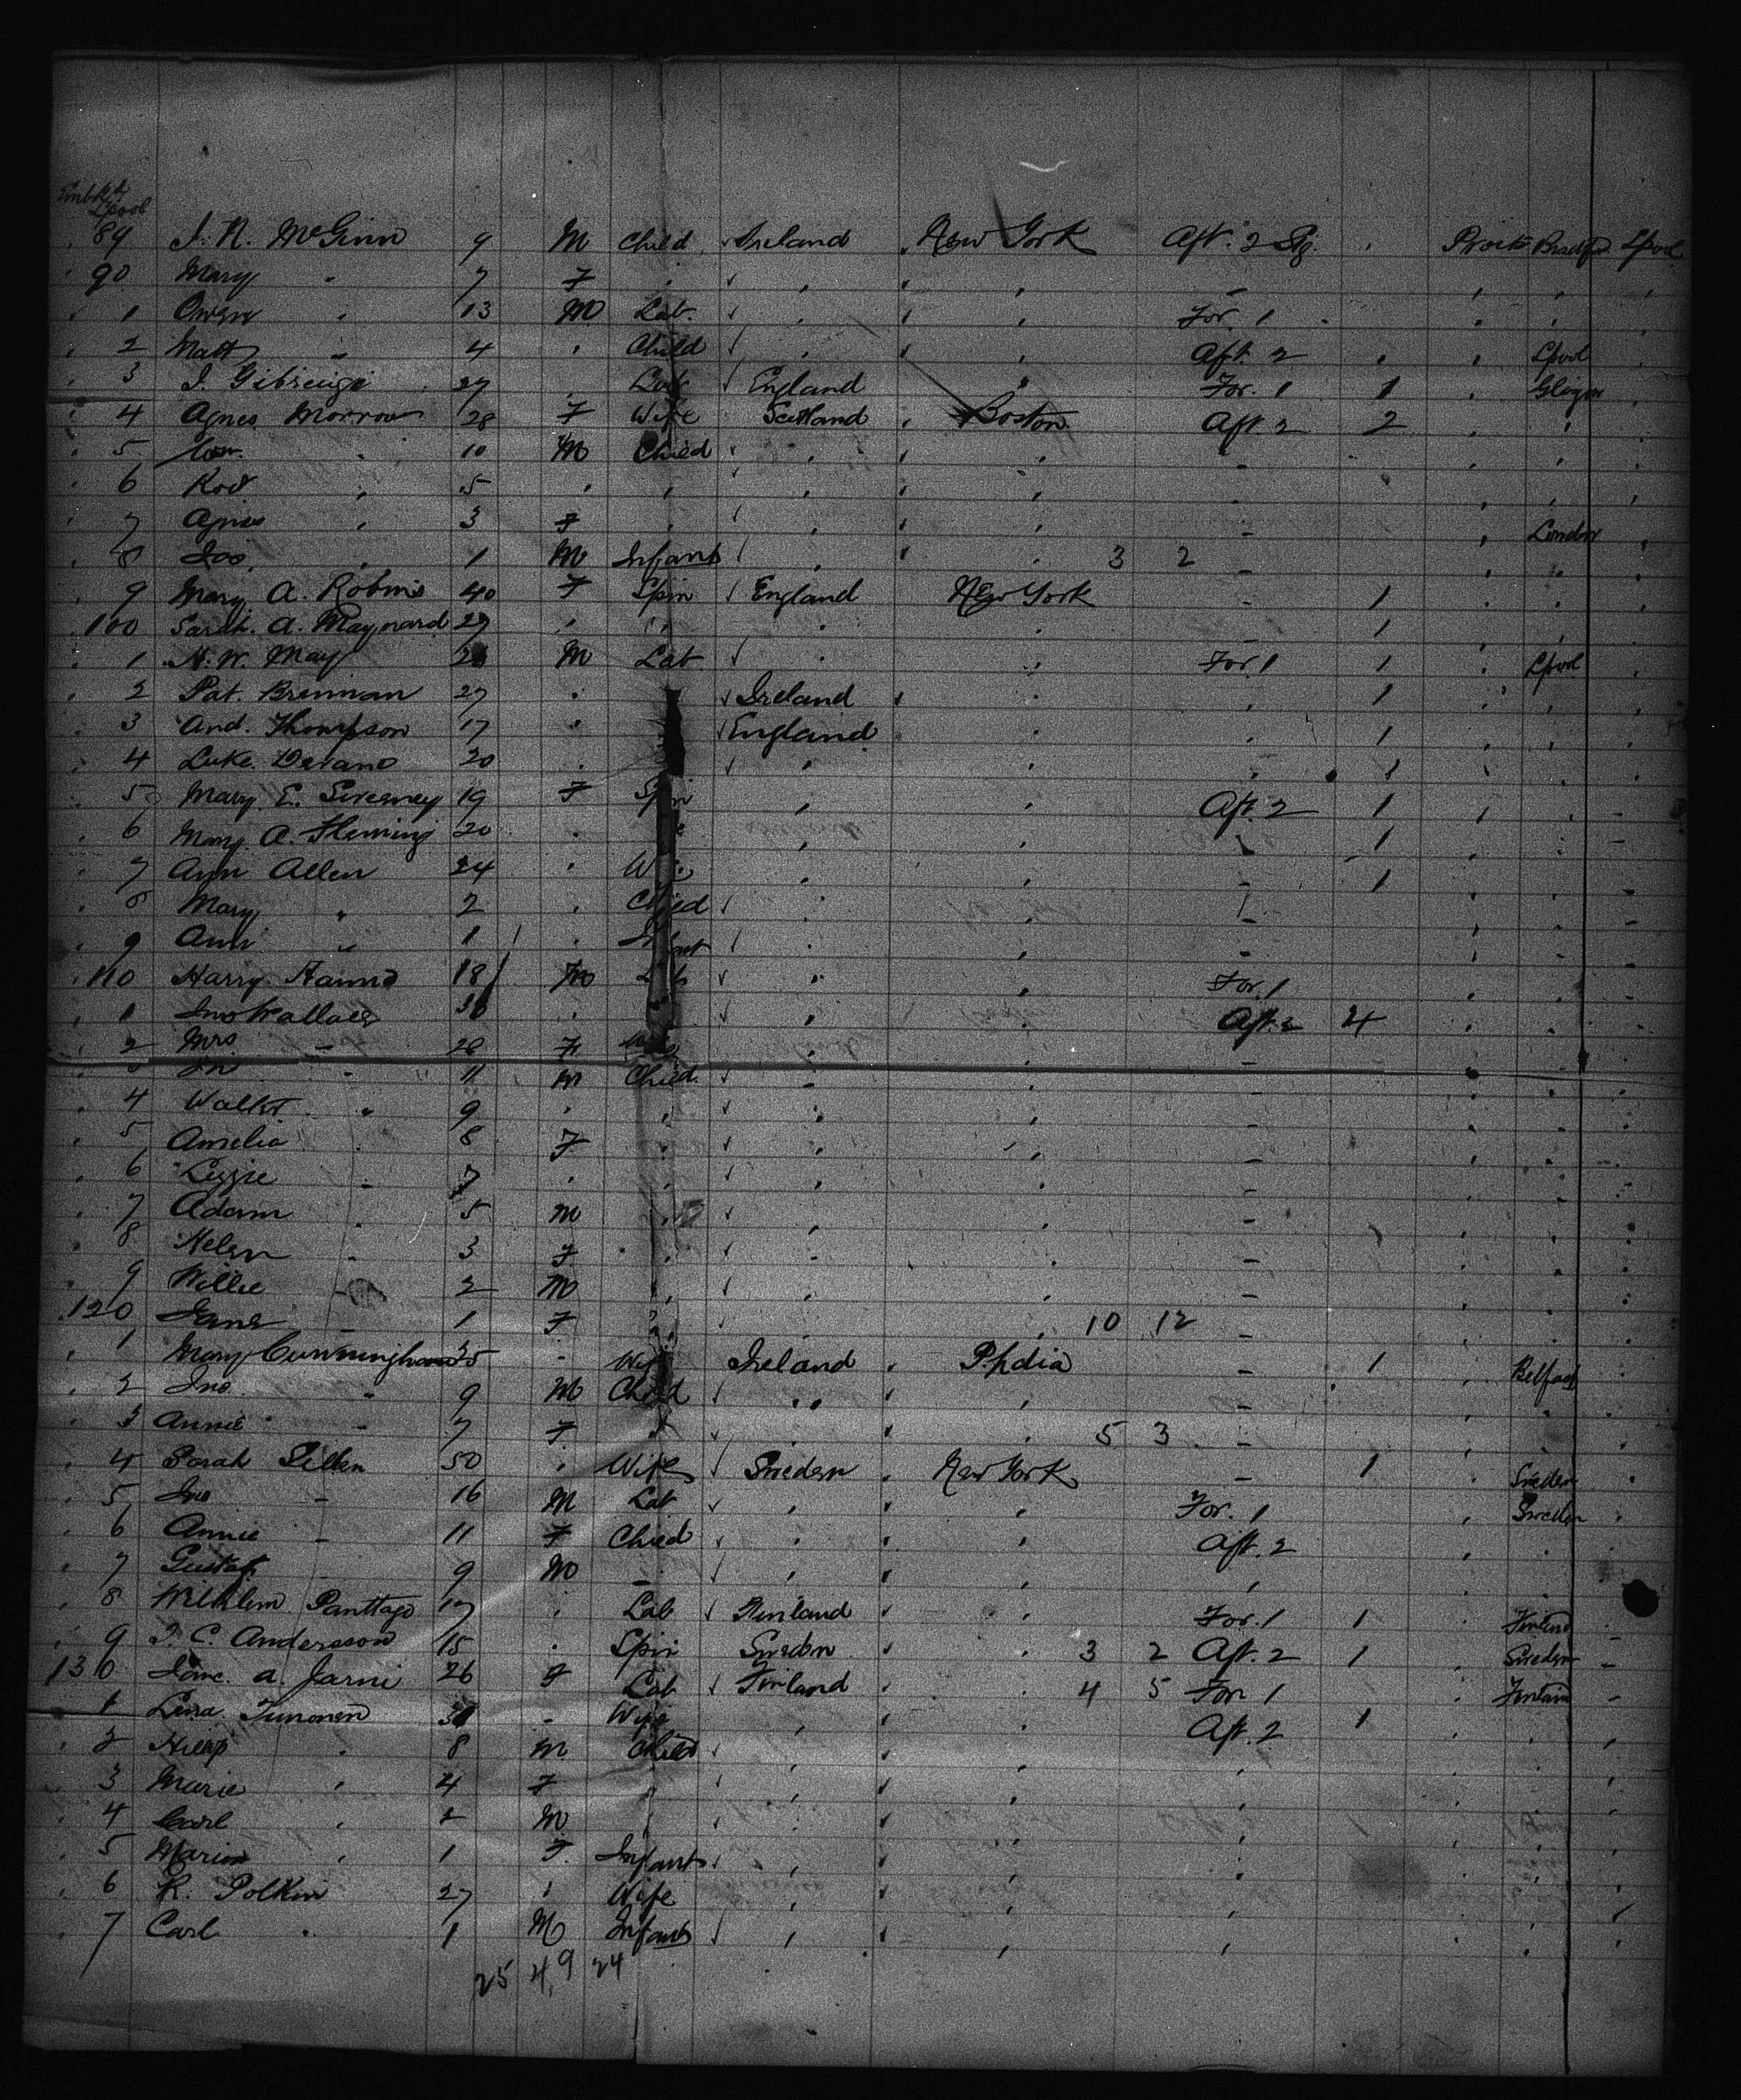 Embk'd
L'pool
89 J. R. McGinn 9 M Child Ireland New York Aft. 2 Stg. Bradfd Lpool
90 Mary " 7 F
1 Owen " 13 M Lab. For. 1
2 Matt " 4 Child Aft. 2 Lpool
3 J. 27 Lab England For. 1 1 Glasgow
4 Agnes Morrow 28 F Wife Scotland Boston Aft 2 2
5 10 M Child
6 Rod 5
7 Agnes 3 F London
8 Jas. 1 M Infant 3 2
9 Mary A. Robins 40 F Spin England New York 1
100 Sarah A. Maynard 29 1
1 N. W. May M Lab For 1 1 Lpool
2 Pat. Brennan 27 Ireland 1
3 And. Thompson 17 England 1
4 Luke 20 1
5 Mary E. Sweeney 19 F Spin Aft. 2 1
6 Mary A. Fleming 20 1
7 Ann Allen 24 1
8 Mary " 2 Child
9 Ann " 1 Infant
110 Harry 18 M Lab For. 1
1 Jno Wallace Aft 2 4
2 Mrs - 28 F Wife
Jno " 11 M Child
4 Walter " 9
5 Amelia 8 F
6 Lizzie - 7
7 Adam 5 M
8 Helen - 3 F
9 Willie 2 M
120 Jane - 1 F 10 12
1 Mary Cunningham Wife Ireland Phdia 1 Belfast
2 Jno. - 9 M Child
3 Annie - 7 F 5 3
4 Sarah 50 Wife Sweden New York 1 Sweden
5 Jno - 16 M Lab For. 1 Sweden
6 Annie - 11 F Child Aft. 2
7 Gustaf 9 M -
8 Wilhlem Panttago 17 Lab Finland For. 1 1 Finland
9 J. C. Andersson 15 Spin Sweden 3 2 Aft. 2 1 Sweden
130 A. Jarni 26 F Lab Finland 4 5 For 1 Finland
1 Lena Tunonen Wife Aft. 2 1
2 8 M Child
3 Marie 4 F
4 Carl 2 M
5 Maria 1 F Infant
6 K. Polkin 27 Wife
7 Carl " 1 M Infant
25 4 9 24